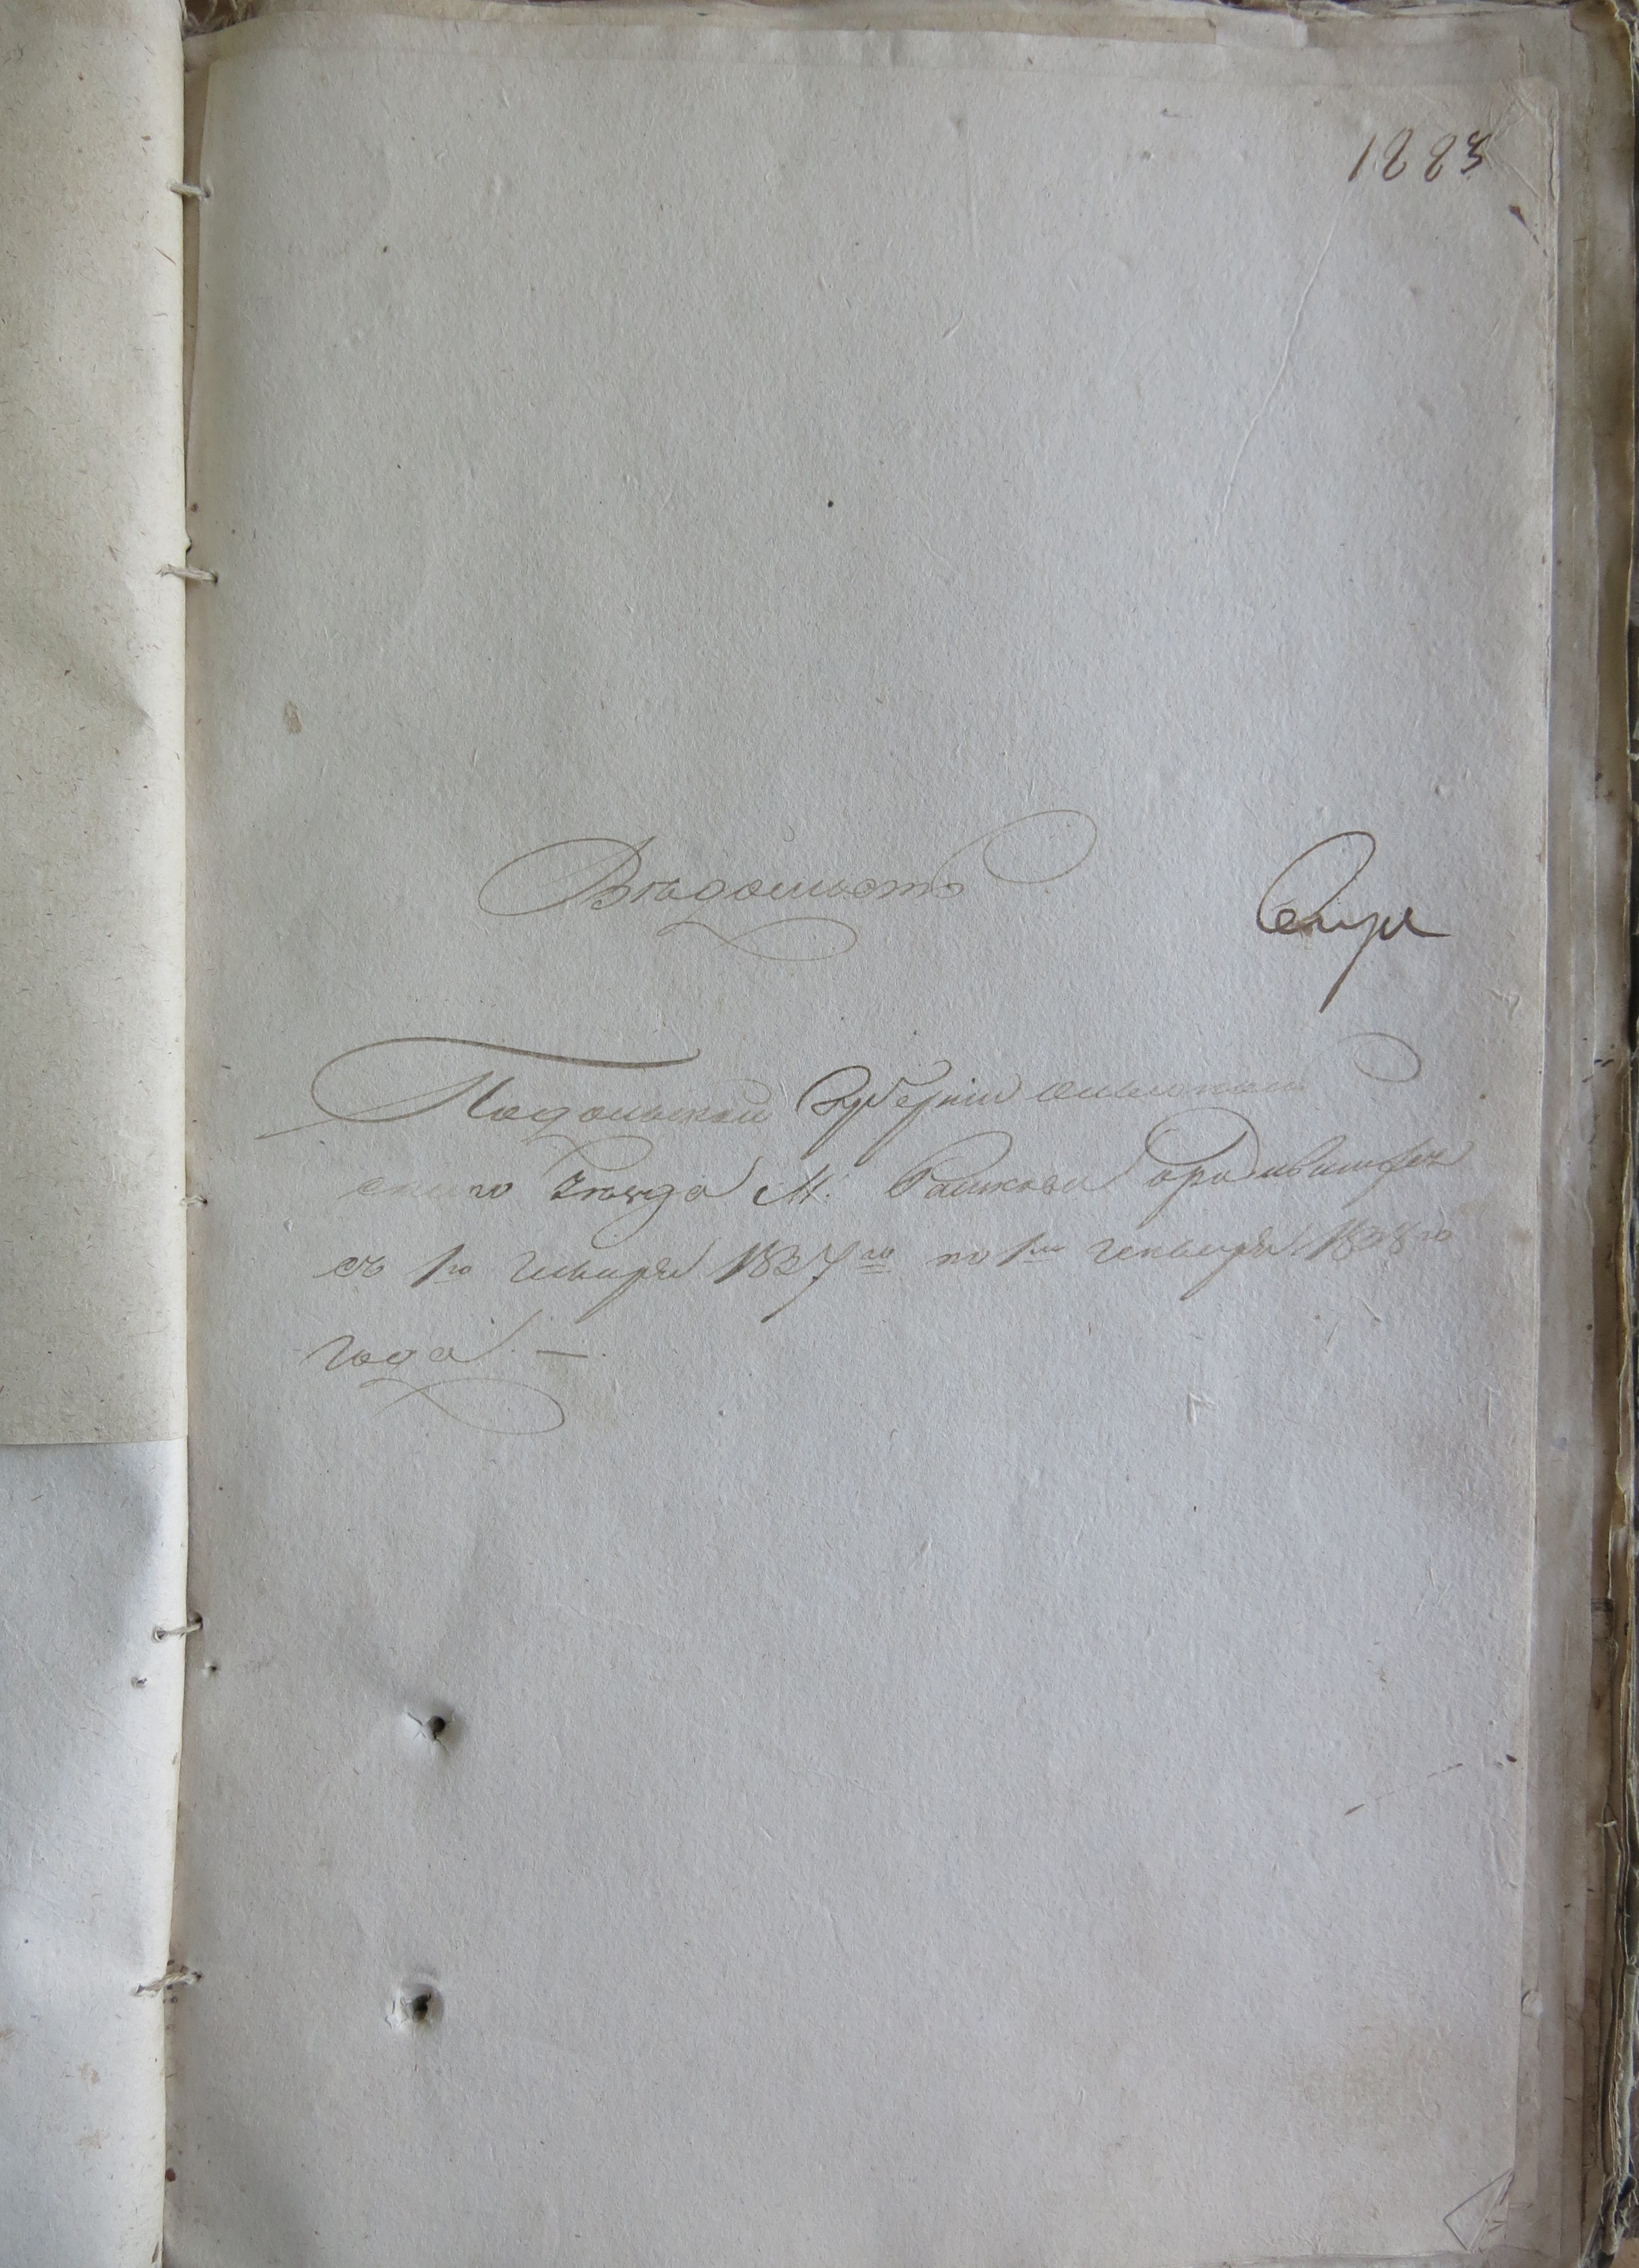 1223
Вѣдомость
Подольской Губерніи Ольгополь
скаго уѣзда М. Рашкова о родившихся
съ 1го Генваря 1837го по 1е Генваря 1838го
года. —